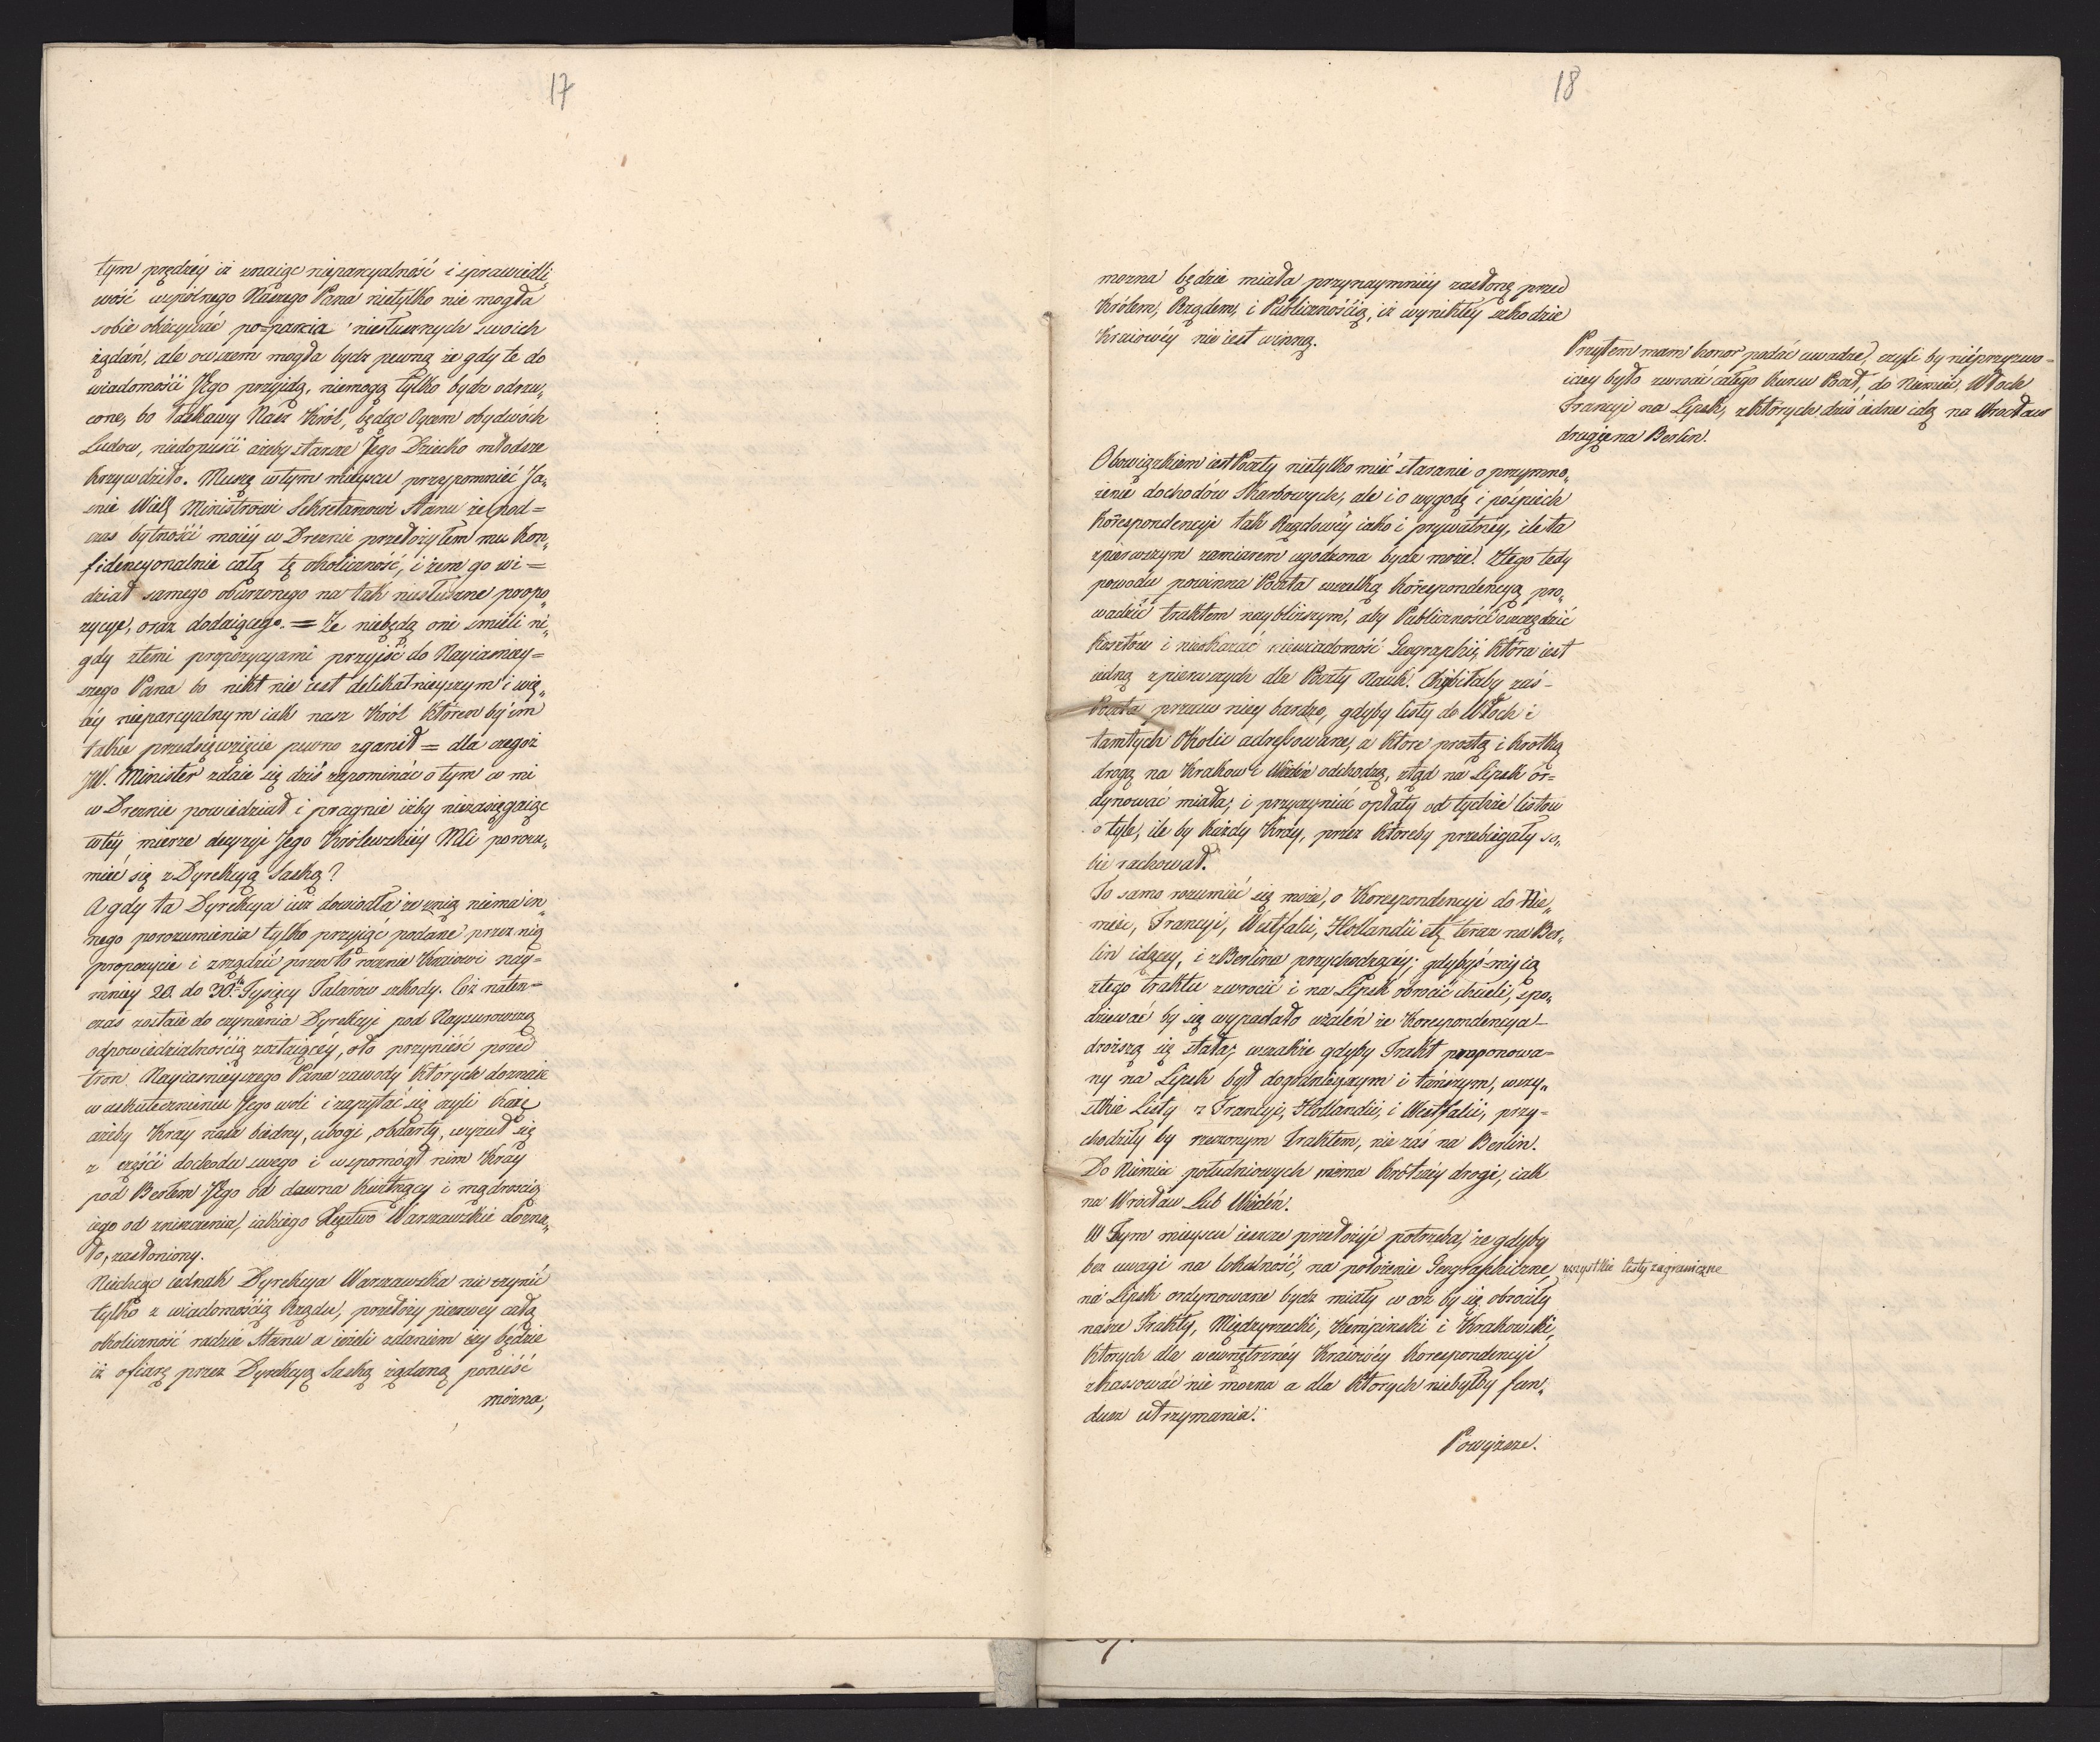 17
tym prędzéy iż znaiąc nieparcyalność i sprawiedli„
wość wspólnego Naszego Pana nietylko nie mogła
sobie obiecywać po=parcia niesłusznych swoich
żądań, ale owszem mogła bydz pewną że gdy te do
wiadomości Jego przyidą, niemogą tylko bydz odrzu„
cone, bo łaskawy Nasz Król, będąc Oycem obydwóch
Ludow, niedopuści ażeby starsze Jego Dziecko młodsze
krzywdziło. Muszę wtym mieyscu przypomnieć Ja„
śnie Wielz Ministrowi Sekretarzowi Stanu że pod=
czas bytności moiéy w Dreznie przełożyłem mu kon„
fidencyonalnie całą tę okoliczność, i żem go wi=
dział samego oburzonego na tak niesłuszne propo„
zycye, oraz dodaiącego. = Że niebędą oni śmieli ni„
gdy ztemi propozycyami przyjść do Nayiaśniey=
szego Pana bo nikt nie iest delikatnieyszym i wię„
céy nieparcyalnym iak nasz Król któren by im
takie przedsięwzięcie pewno zganił = dla czegóż
JW. Minister zdaie się dziś zapominać o tym co mi
w Dreznie powiedział i pragnie iżby niezasięgaiąc
wtéy mierze decyzyi Jego Królewskiéy Mści porozu„
mieć się z Dyrekcyą Saską?
A gdy ta Dyrekcya iuż dowiodła że znią niema in„
nego porozumienia tylko przyiąć podane przez nią
propozycie i zrządzić przezto rocznie Kraiowi nay=
mniey 20. do 30tu Tysięcy Talarów szkody. Cóż naten=
czas zostaie do czynienia Dyrekcyi pod Naysurowszą
odpowiedzialnością zostaiącéy, oto przynieść przed
tron Nayiaśnieyszego Pana zawody których doznaie
w uskutecznieniu Jego woli i zapytać się czyli każe
ażeby Kray nasz biedny, ubogi, obdarty, wyzuł się
z części dochodu swego i wspomógł nim Kray
pod Berłem Jego od dawna kwitnący i mądrością
iego od zniszczenia, iakiego Xięstwo Warszawskie dozna„
ło, zasłoniony.
Niechcąc iednak Dyrekcya Warszawska nic czynić
tylko z wiadomością Rządu, przełoży pierwey całą
okoliczność radzie Stanu a ieżeli zdaniem iey będzie
iż ofiarę przez Dyrekcyą Saską żądaną ponieść
można,
18
mozna będzie miała przynaymniéy zasłonę przed
Królem, Rządem, i Publicznością, iż wynikłey szkodzie
Kraiowéy nie iest winną.
Przytem mam honor podać uwadze, czyli by nieprzyzwo=
iciey było zwrócić całego kursu Poczt, do Niemiec, Włoch
Francyi na Lipsk, zktórych dziś iedne idą na Wrocław
drugie na Berlin.
Obowiązkiem iest Poczty nietylko mieć staranie o przymno„
żenie dochodów skarbowych, ale i o wygodę i pośpiech
Korrespondencyi tak Rządowéy iako i prywatnéy, ile ta
zpierwszym zamiarem ugodzona bydz może. Ztego tedy
powodu powinna Poczta wszelką Korrespondencyą pro„
wadzić traktem naybliższym, aby Publiczności oszczędzić
kosztów i nieokazać niewiadomość Geographii, która iest
iedną zpierwszych dla Poczty Nauk. Chybiłaby zaś
Poczta przeciw niey bardzo, gdyby listy do Włoch i
tamtych okolic adressowane, a które prostą i krótką
drogą na Krakow i Wiedeń odchodzą, ztąd na Lipsk or=
dynować miała, i przyczynić opłaty od tychże listów
o tyle, ile by każdy Kray, przez któreby przebiegały so„
bie rachował.
To samo rozumieć się może, o Korespondencyi do Nie„
miec, Francyi, Westfalii, Hollandii etc teraz na Ber„
lin idącey, i zBerlina przychodzącéy; gdybyś=my ią
ztego traktu zwrocić i na Lipsk obrocić chcieli, spo„
dziewać by się wypadało użaleń że Korespondencya
droższą się stała; wszakże gdyby Trakt proponowa=
ny na Lipsk był dogodnieyszym i tańszym, wszy„
stkie Listy z Francyi, Hollandii, i Westfalii, przy=
chodziły by rzeczonym traktem, nie zaś na Berlin.
Do Niemiec południowych niema krótszéy drogi, iak
na Wrocław Lub Wiedeń.
W Tym mieyscu ieszcze przełożyć potrzeba, że gdyby
bez uwagi na lokalność, na położenie Geographiczne, wszystkie listy zagraniczne
na Lipsk ordynowane bydz miały w cóż by się obrociły
nasze Trakty, Międzyrzecki, Kempinski i Krakowski,
których dla wewnętrznéy Kraiowéy Korespondencyi
zkassować nie można a dla których niebyłby fun„
dusz utrzymania.
Powyższe.